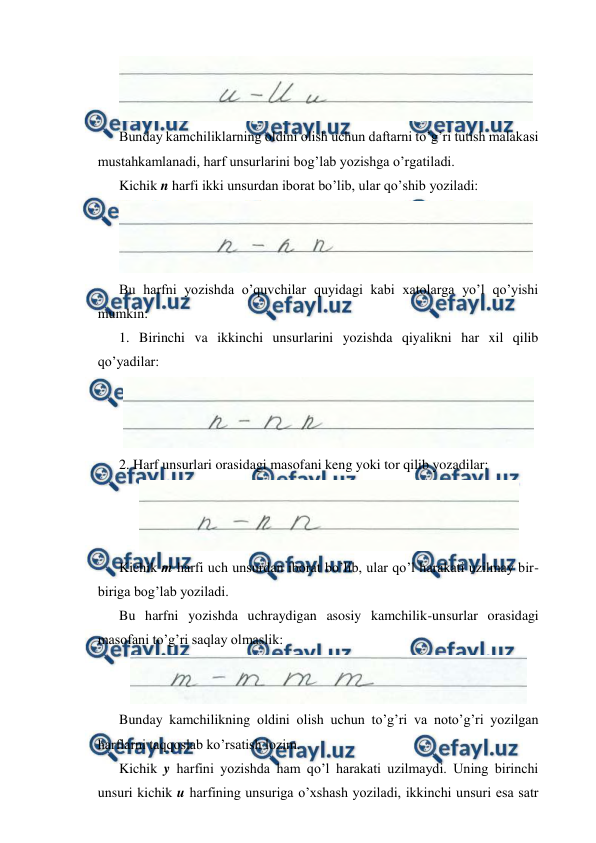 u – U u
Bunday kamchiliklarning oldini olish uchun daftarni to’g’ri tutish malakasi
mustahkamlanadi, harf unsurlarini bog’lab yozishga o’rgatiladi.
Kichik n harfi ikki unsurdan iborat bo’lib, ular qo’shib yoziladi:
n – n n
Bu harfni yozishda o’quvchilar quyidagi kabi xatolarga yo’l qo’yishi
mumkin:
1. Birinchi va ikkinchi unsurlarini yozishda qiyalikni har xil qilib
qo’yadilar:
n – n n
2. Harf unsurlari orasidagi masofani keng yoki tor qilib yozadilar:
n – n n
Kichik m harfi uch unsurdan iborat bo’lib, ular qo’l harakati uzilmay bir-
biriga bog’lab yoziladi.
Bu harfni yozishda uchraydigan asosiy kamchilik-unsurlar orasidagi
masofani to’g’ri saqlay olmaslik:
m – m m m
Bunday kamchilikning oldini olish uchun to’g’ri va noto’g’ri yozilgan
harflarni taqqoslab ko’rsatish lozim.
Kichik y harfini yozishda ham qo’l harakati uzilmaydi. Uning birinchi
unsuri kichik u harfining unsuriga o’xshash yoziladi, ikkinchi unsuri esa satr